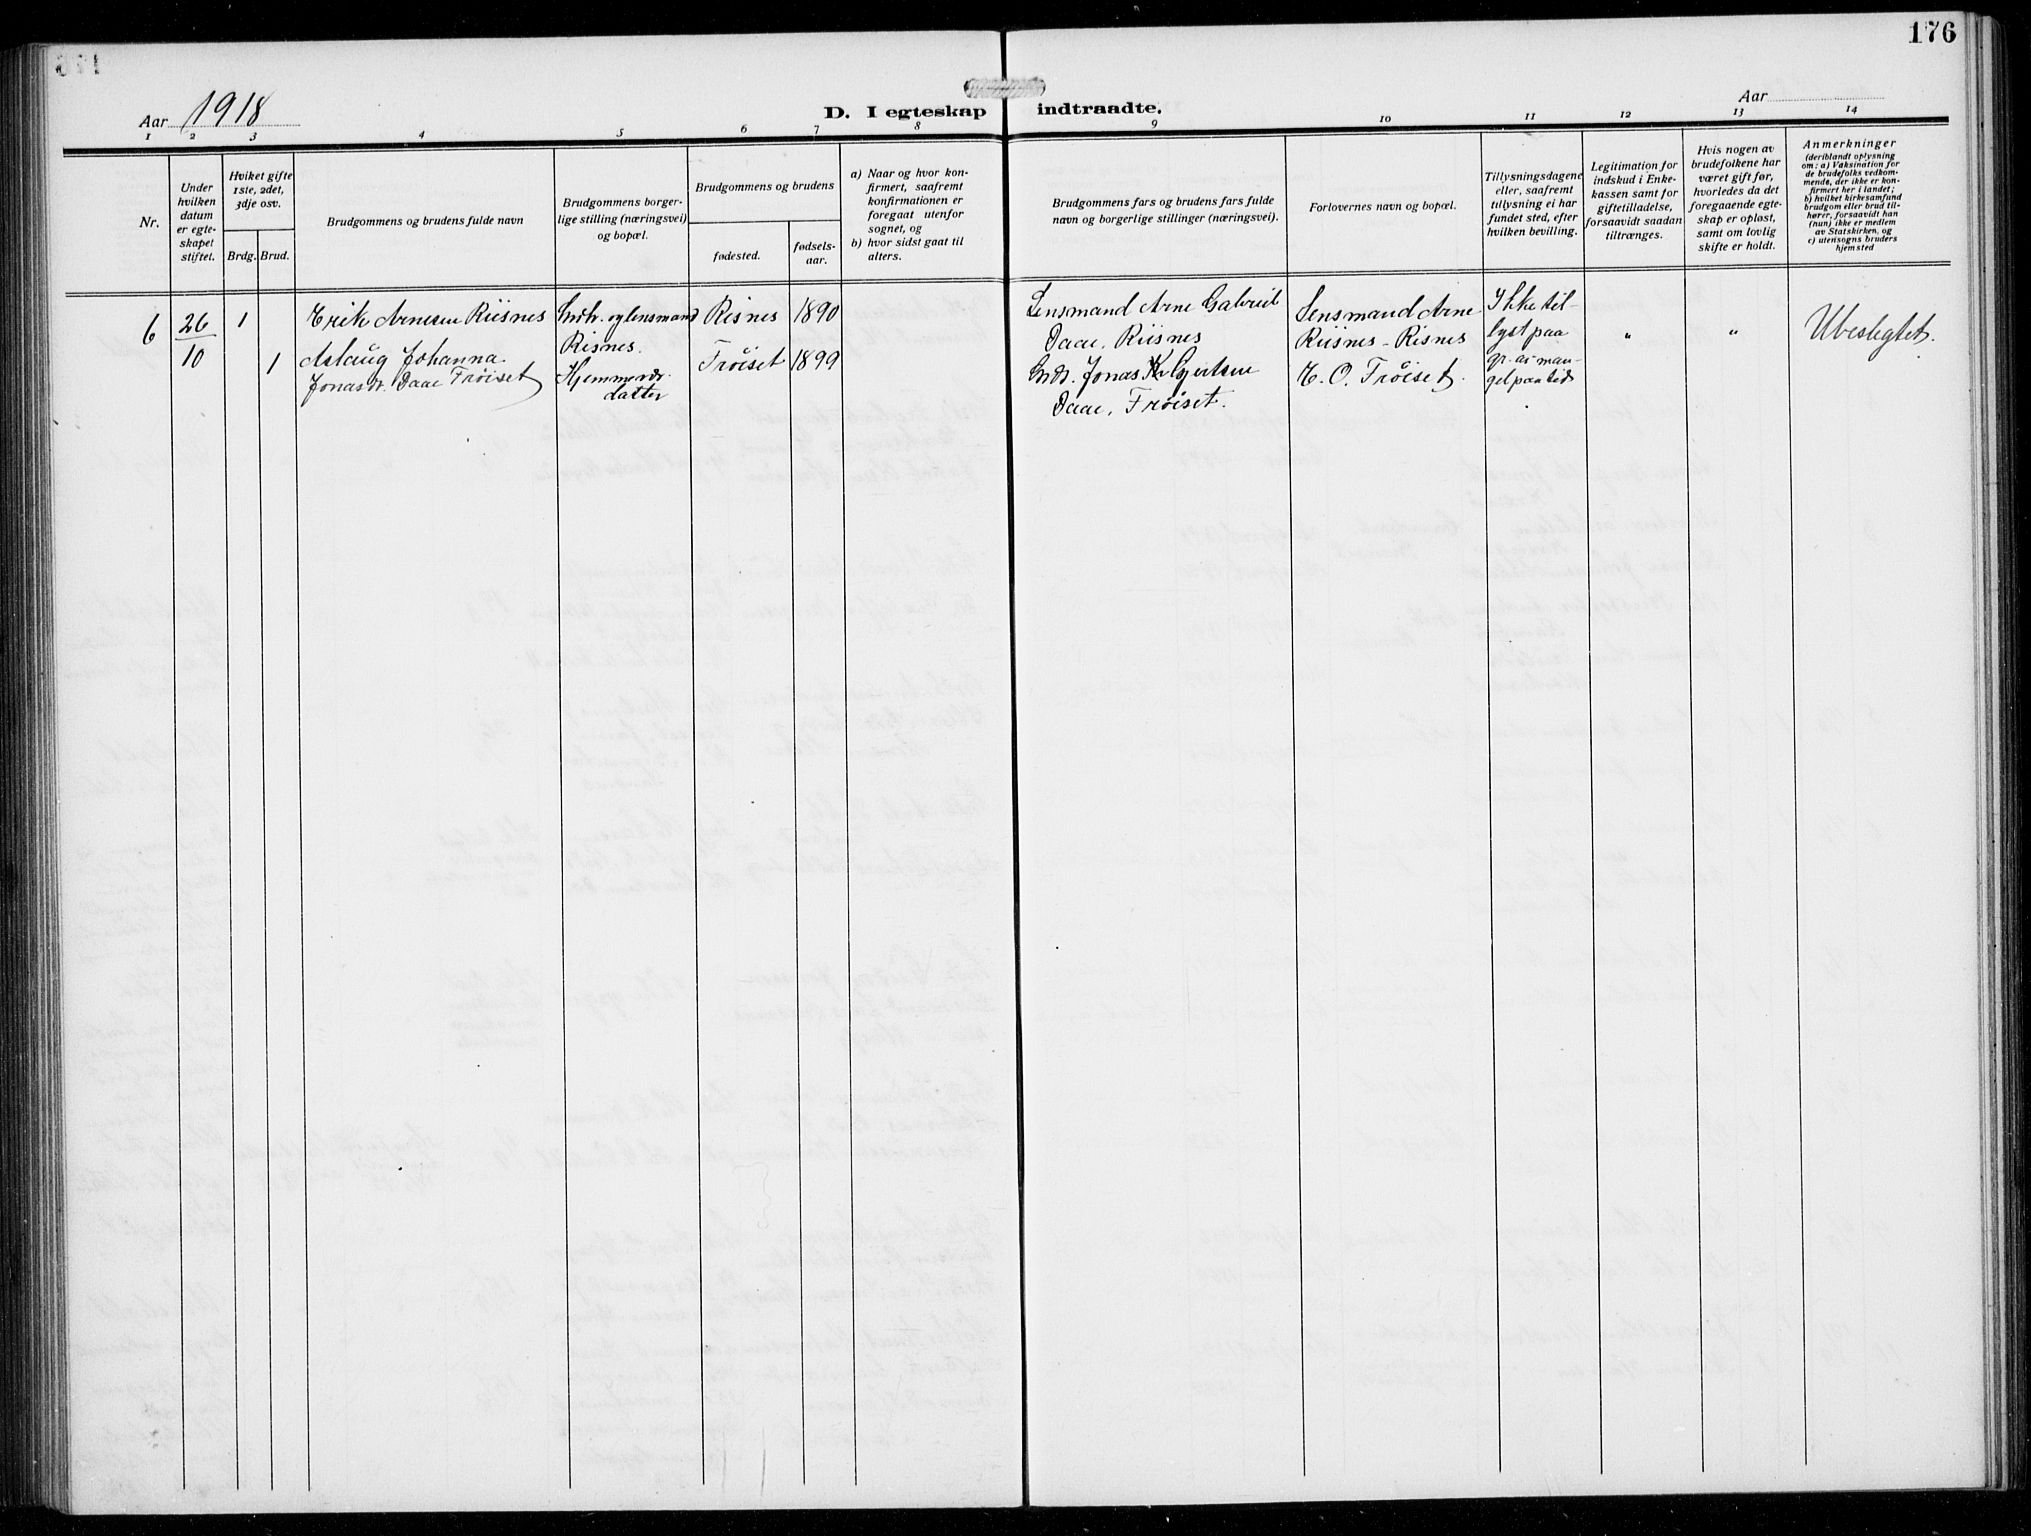 176
Aar 1918
D. I egteskap indtraadte.
Aar
1 2 3 4 5 6 7 8 9 10 11 12 13 14
Nr.
Under
hvilken
datum
er egte-
skapet
stiftet.
Hviket gifte
1ste, 2det,
3dje osv.
Brdg.
Brud.
Brudgommens og brudens fulde navn
Brudgommens borger-
lige stilling (næringsvei)
og bopæl.
Brudgommens og brudens
fødested.
fødsels-
aar.
a) Naar og hvor kon-
firmert, saafremt
konfirmationen er
foregaat utenfor
sognet, og
b) hvor sidst gaat til
alters.
Brudgommens fars og brudens fars fulde
navn og borgerlige stillinger (næringsvei).
Forlovernes navn og bopæl.
Tillysningsdagene
eller, saafremt
tillysning ei har
fundet sted, efter
hvilken bevilling.
Legitimation for
indskud i Enke-
kassen samt for
giftetilladelse,
forsaavidt saadan
tiltrænges.
Hvis nogen av
brudefolkene har
været gift før,
hvorledes da det
foregaaende egte-
skap er opløst,
samt om lovlig
skifte er holdt.
Anmerkninger
(deriblandt oplysning
om: a) Vaksination for
de brudefolks vedkom-
mende, der ikke er kon-
firmert her i landet;
b) hvilket kirkesamfund
brudgom eller brud til-
hører, forsaavidt han
(hun) ikke er medlem
av Statskirken, og
c) utensogns bruders
hjemsted
6
26
10
1
1
Erik Arnesen Riisnes
Aslaug Johanna
Jonasdr. Daae Frøiset
Grdbr. og lensmand
Risnes.
Hjemmevær.
datter
Risnes 1890
Frøiset 1899
Lensmand Arne Gabriel
Daae, Riisnes
Grdbr. Jonas K Gjertsen
Daae, Frøiset.
Lensmand Arne
Riisnes - Risnes
E. O. Frøiset.
Ikke til-
lyst paa
gr. av man-
gel paa tid
"
"
Ubeslegtet.